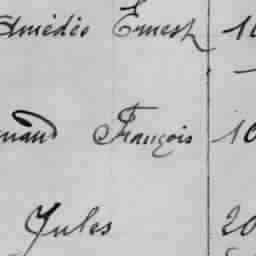 Amédée Ernest 10
François 10
Jules 20